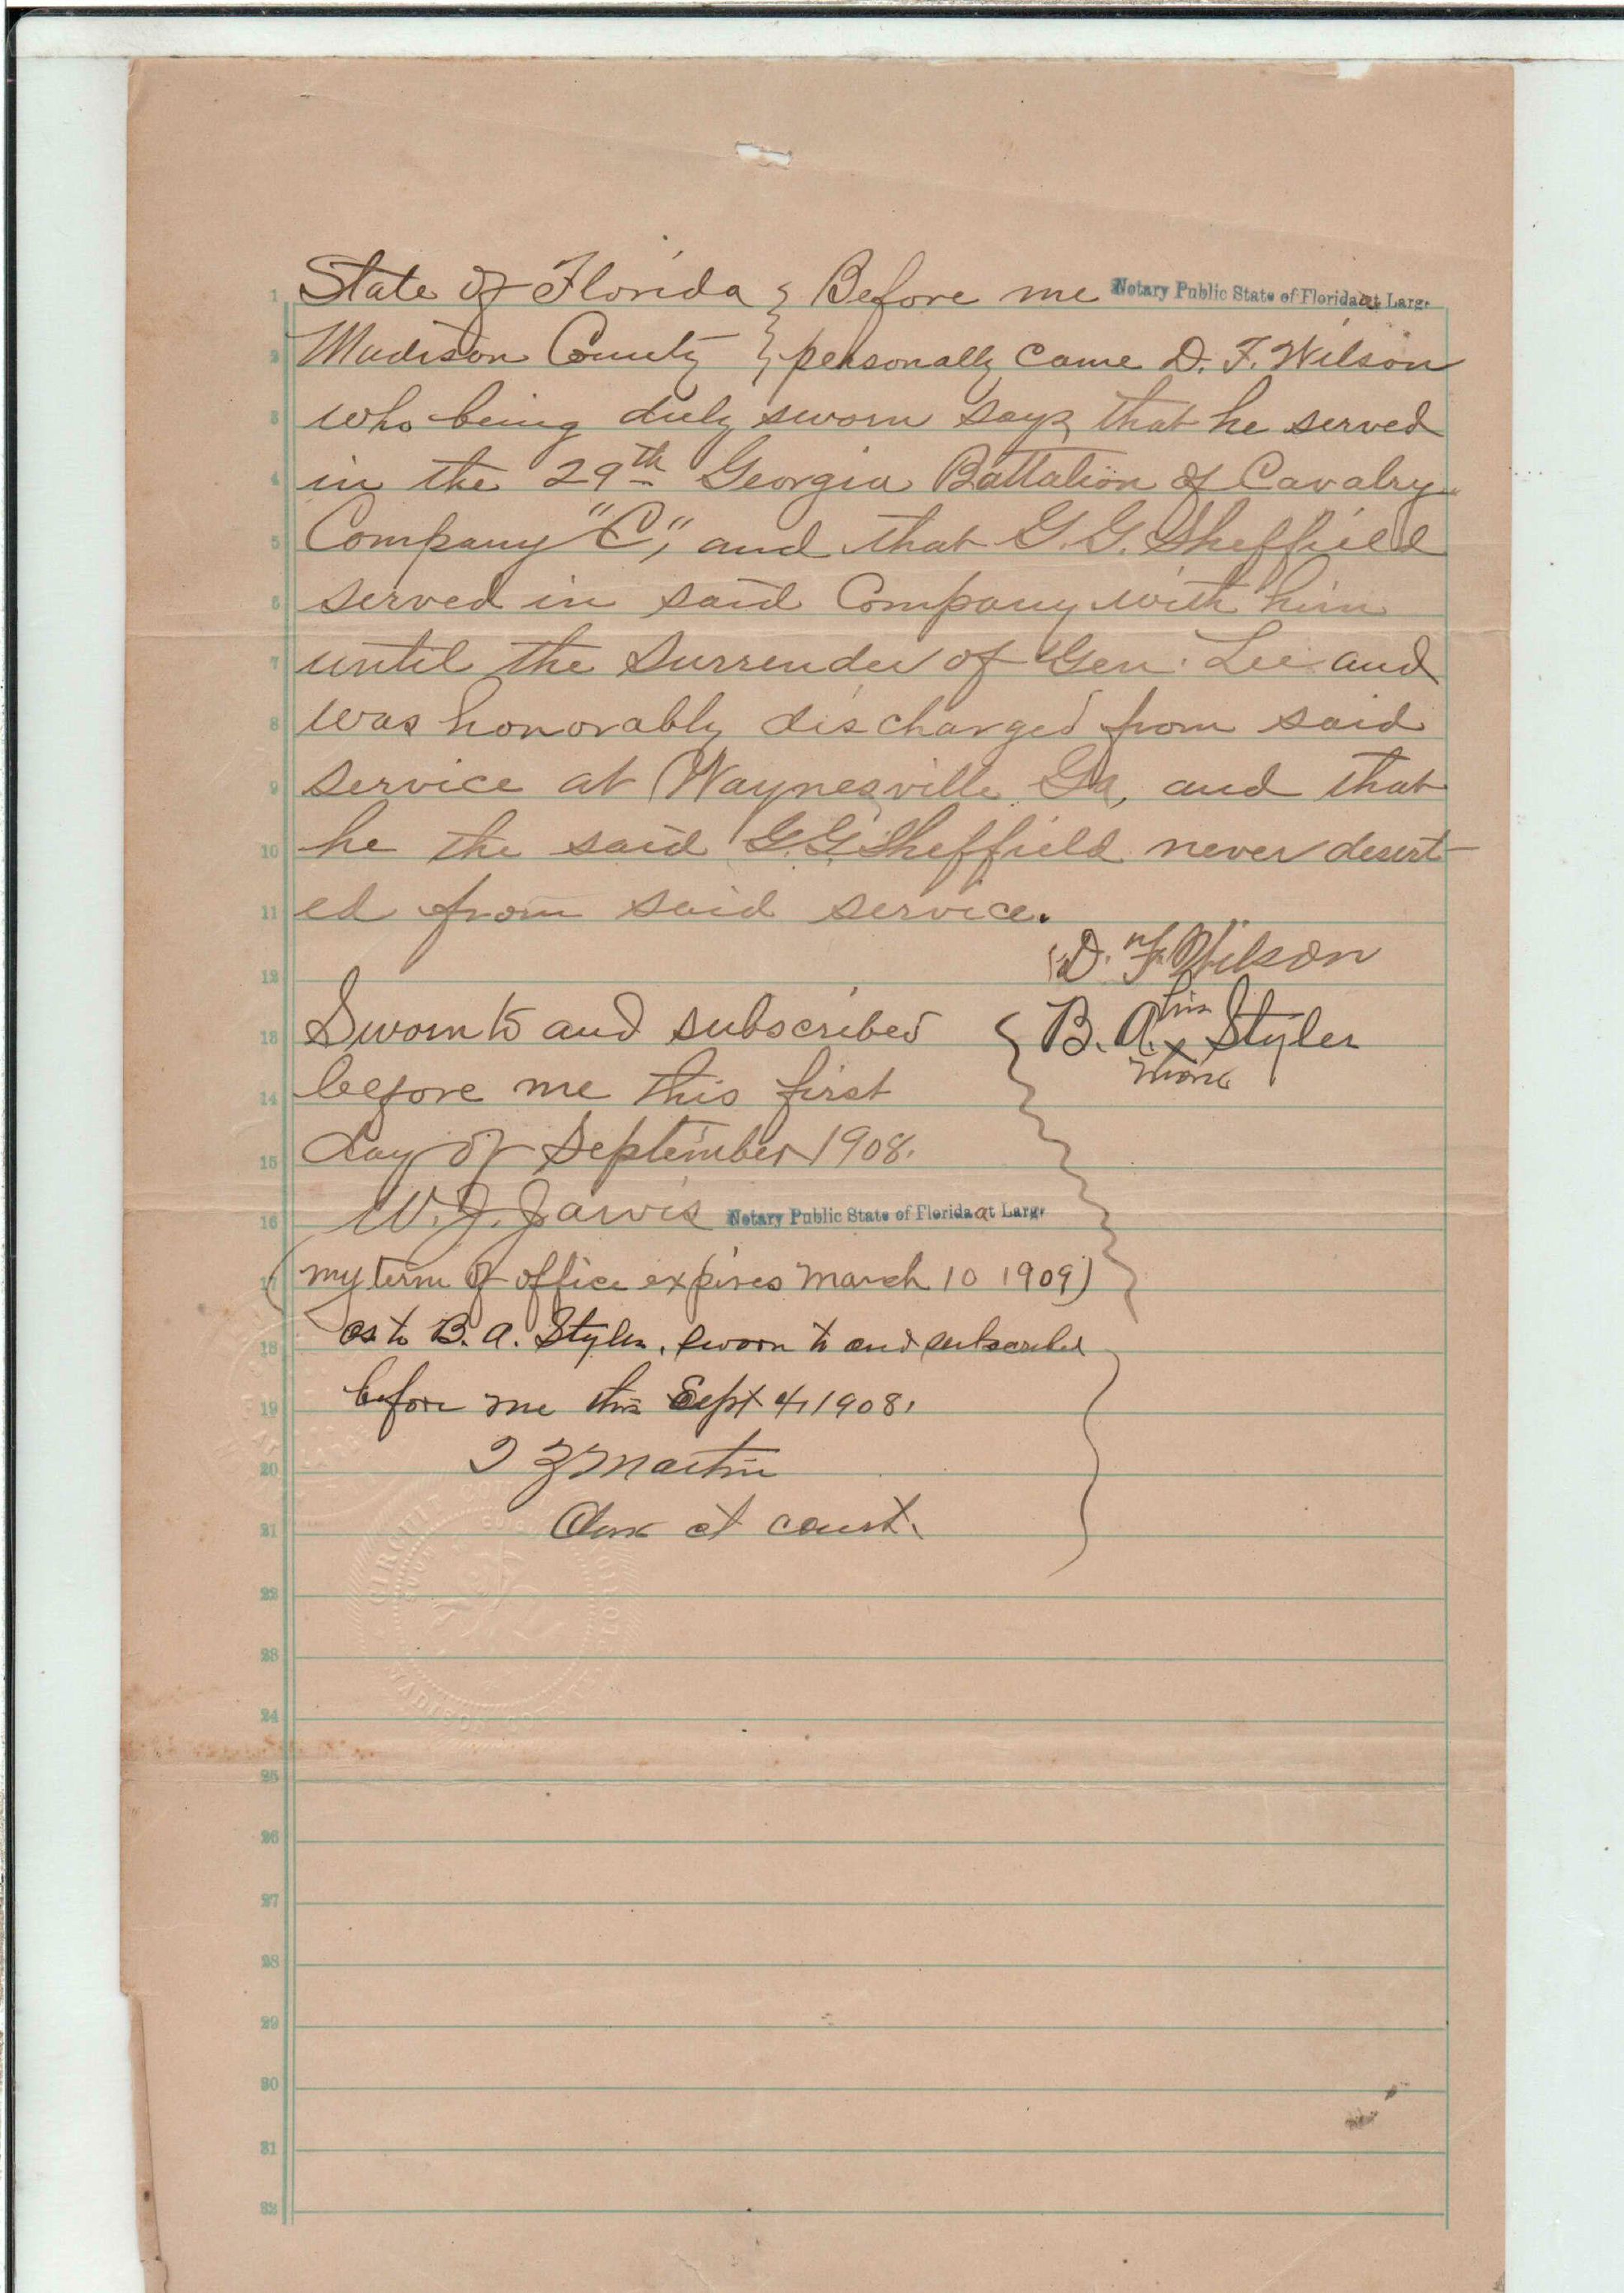 State of Florida } Before me Notary Public State of Florida at Large
Madison County } personally came D. F. Wilson
who being duly sworn says that he served
in the 29th Georgia Battalion of Cavalry
Company "C", and that G. G. Sheffield
served in said Company with him
until the surrender of Gen. Lee and
was honorably discharged from said
service at Waynesville Ga, and that
he the said G. G. Sheffield never desert-
ed from said service.
D. F. Wilson
Sworn to and subscribed
B. A. his x mark Styler
before me this first
day of September 1908.
W. J. Jarvis Notary Public State of Florida at Large
(my term of office expires March 10 1909)
as to B. A. Styler, sworn to and subscribed
before me this Sept 4, 1908.
Martin
Clerk ct court.
CIRCUIT
MADISON COUNTY
1
2
3
4
5
6
7
8
9
10
11
12
13
14
15
16
17
18
19
20
21
22
23
24
25
26
27
28
29
30
31
32